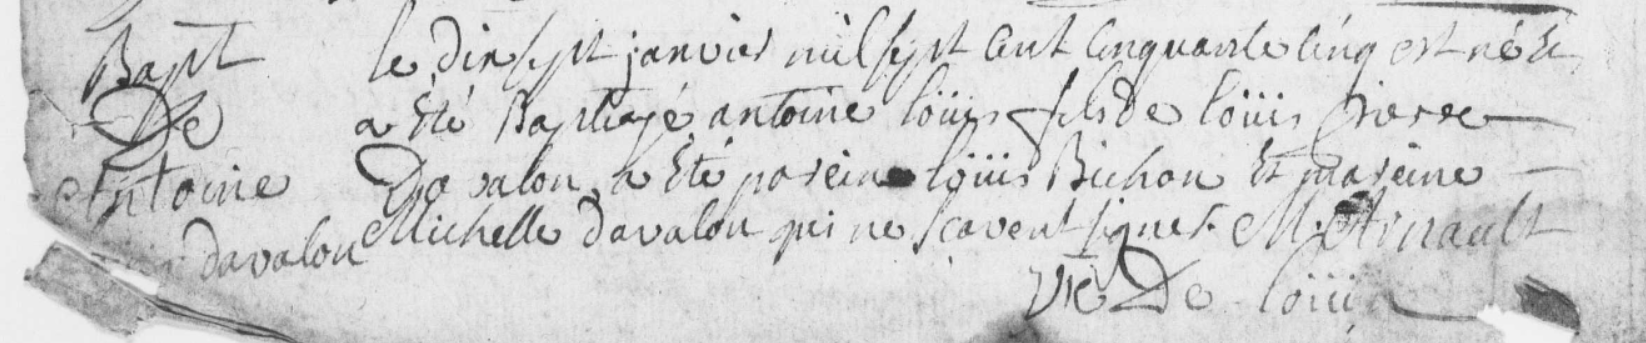 Bapt
De
Antoine
davalou
le dix sept janvier mil sept cent cinquante cinq est né Et
a Eté Baptizé antoine loüis fils de loüis Pierre
Davalou, a Eté pareine loüis Bichon Et mareine
Michelle davalou qui ne scavent signer. M: Arnault
Vic De